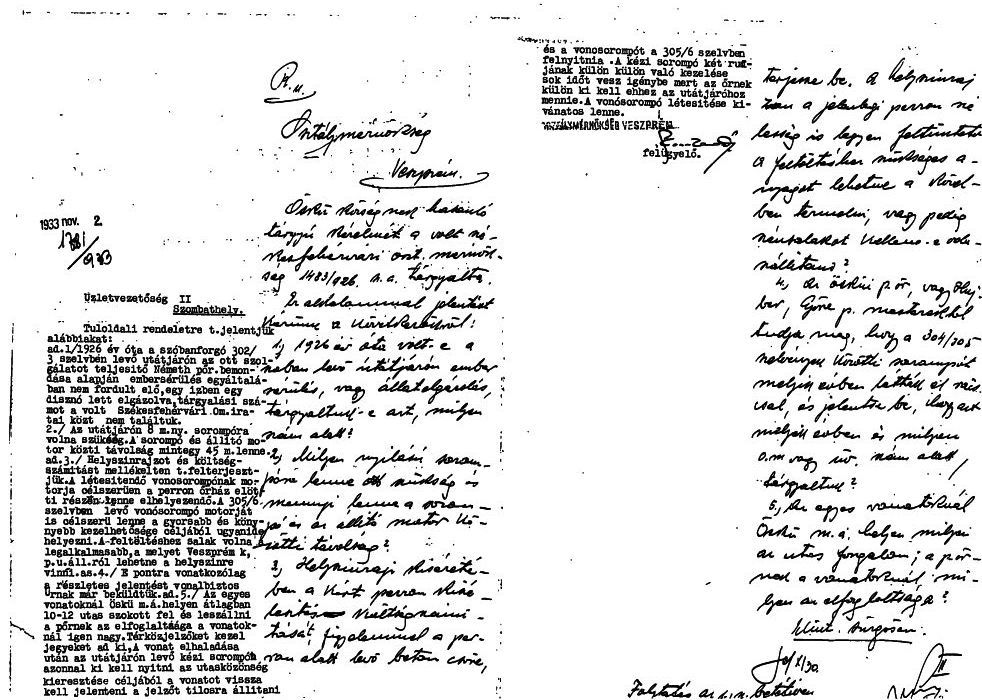 Veszprém.
Öskü község nek hasonló
tárgyú kérelmét a volt szé-
kesfehérvári oszt. mérnök-
ség 1483/926. a. a. tárgyalta.
jelentést
1, 1926 év óta volt-e a
ban levő útátjárón ember
sérülés, vagy állatelgázolás,
tárgyaltuk-e azt, milyen
szám alatt?
2, Milyen nyílású sorom-
póra lenne ott szükség és
mennyi lenne a sorom-
pó és az állító motor kö-
zötti távolság?
3, Helyszínrajz kíséreté-
ben a kért perron
költségszámí-
tását figyelemmel a per-
ron alatt levő beton csőre,
1933 nov. 2.
1781/933
Üzletvezetőség II
Szombathely.
Tuloldali rendeletre t.jelentjük
alábbiakat:
ad.1/1926 év óta a szóbanforgó 302/
3 szelvben levő utátjárón az ott szol-
gálatot teljesitő Németh pór.bemon-
dása alapján embersérülés egyáltalá-
ban nem fordult elő,egy izben egy
disznó lett elgázolva,tárgyalási szá-
mot a volt Székesfehérvári.Om.ira-
tai közt nem találtuk.
2./ Az utátjárón 8 m.ny. sorompóra
volna szükség.A sorompó és állitó mo-
tor közti távolság mintegy 45 m.lenne.
ad.3./ Helyszinrajzot és költség-
számitást mellékelten t.felterjeszt-
jük.A létesitendő vonosorompónak mo-
torja célszerüen a perron őrház előt-
ti részén lenne elhelyezendő.A 305/6
szelvben levő vonósorompó motorját
is célszerü lenne a gyorsabb és köny-
nyebb kezelhetősége céljából ugyanide
helyezni.A feltöltéshez salak volna
legalkalmasabb,a melyet Veszprém k,
p.u.áll.ról lehetne a helyszinre
vinni.as.4./ E pontra vonatkozólag
a részletes jelentést vonalbiztos
urnak már beküldtük.ad.5./ Az egyes
vonatoknál öskü m.á.helyen átlagban
10-12 utas szokott fel és leszállni
a pórnek az elfoglaltsága a vonatok-
nál igen nagy.Térközjelzőket kezel
jegyeket ad ki,A vonat elhaladása
után az utátjárón levő kézi sorompót
azonnal ki kell nyitni az utasközönség
kieresztése céljából a vonatot vissza
kell jelenteni a jelzőt tilosra állitani
és a vonosorompót a 305/6 szelvben
felnyitnia .A kézi sorompó két rud-
jának külön külön való kezelése
sok időt vesz igénybe mert az őrnek
külön ki kell ehhez az utátjáróhoz
mennie.A vonósorompó létesitése ki-
vánatos lenne.
OSZTÁLYMÉRNÖKSÉG VESZPRÉM
felügyelő.
terjessze be. A helyszínrajz
zon a jelenlegi perron szé
lesség is legyen feltüntetve
A feltöltéshez szükséges a-
nyagot lehetne a
ben termelni, vagy pedig
salakot kellene-e oda
szállítani?
4, Az öskui pór, vagy
p. mestertől
tudja meg, hogy a 304/305
szelvények közötti sorompót
melyik évben
és jelentse be, hogy azt
melyik évben és milyen
o.m vagy üv. szám alatt,
tárgyaltuk?
5, Az egyes vonatoknál
Öskü m.á. helyen milyen
az utas forgalom; a pór-
nek a vonatoknál mi-
lyen az elfoglaltsága?
Sürgősen.
II
Folytatás az